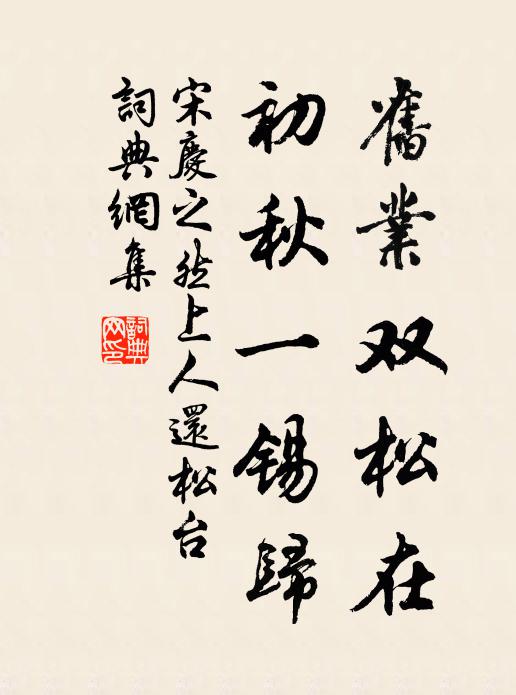 舊業双松在
初秋一锡歸
宋慶之然上人還松台
詞典網集
詞典网印